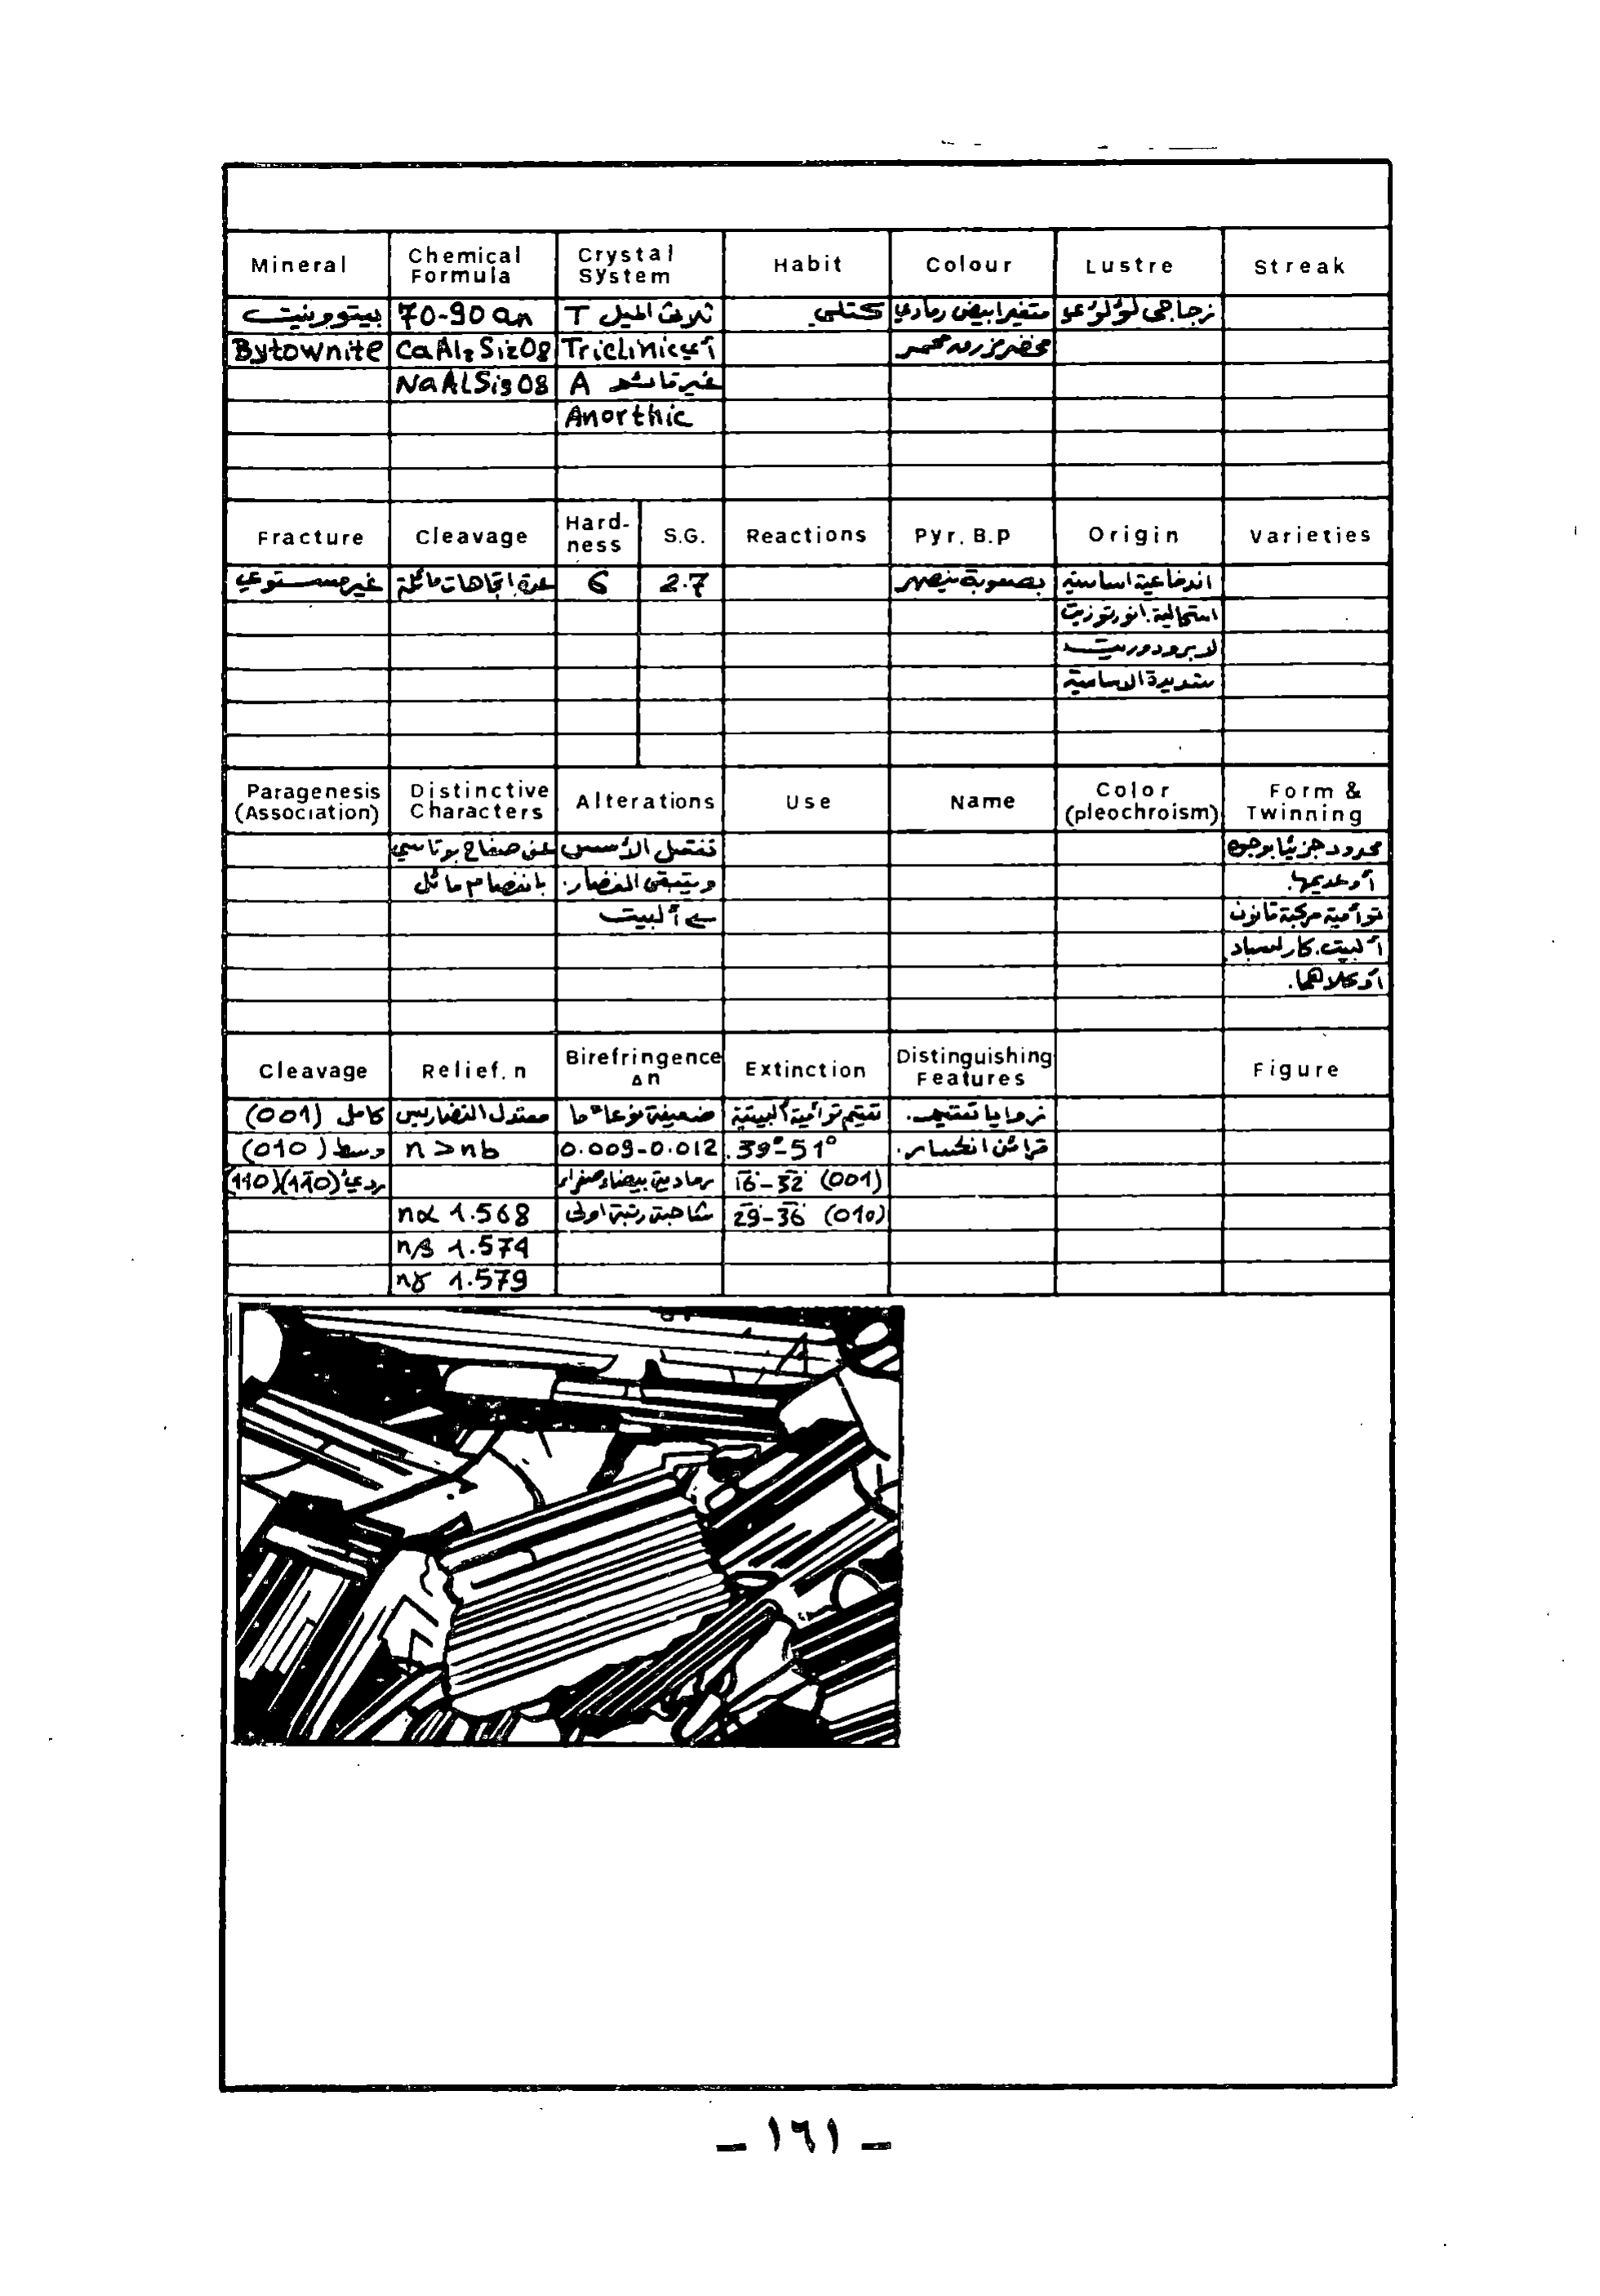 Mineral Chemical Formula Crystal System Habit Colour Lustre Streak
بيتوونيت 70-90 an ثلاثي الميل T كتلي متغير ابيض رمادي زجاجي لؤلؤي
Bytownite CaAl2Si2O8 Triclinic أي مخضر مزرق محمر
NaAlSi3O8 غير قائم A
Anorthic
Fracture Cleavage Hard-ness S.G. Reactions Pyr. B.p Origin Varieties
غير مستوي عدة اتجاهات مائلة 6 2.7 بصعوبة ينصهر اندفاعية اساسية
استحالية. انورتوزيت
لابرودوريت
شديدة الاساسية
Paragenesis (Association) Distinctive Characters Alterations Use Name Color (pleochroism) Form & Twinning
عن صفاح بوتاسي تنفصل الأسس محدود جزئيا بوجوه
بانفصام مائل ويتبقى الغضار. أو عديمها.
أ لبيت توأمية مركبة قانون
ألبيت. كارلسباد
أو كلاهما.
Cleavage Relief. n Birefringence Δn Extinction Distinguishing Features Figure
كامل (001) معتدل التضاريس ضعيفة نوعا ما توأمية ألبيتية زوايا
وسط (010) n > nb 0.009-0.012 39°-51° قرائن انكسار.
رديء (110)(1Ī0) رمادية بيضاء صفراء 16-32 (001)
nα 1.568 شاحبة رتبة اولى 29-36 (010)
nβ 1.574
nγ 1.579
- ١٦١ -